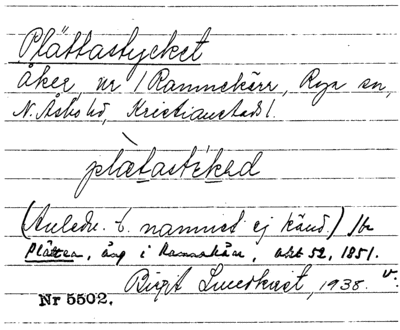 Plättastycket
åker, nr 1 Ramnekärr, Röya sn,
N. Åsbo hd, Kristianstads l.
plætastekəd
(Anledn. t. namnet ej känd.) Jfr
Plätten, äng i Ramnekärr, akt 52, 1851.
Birgit Lundkvist, 1938. v.
Nr 5502.